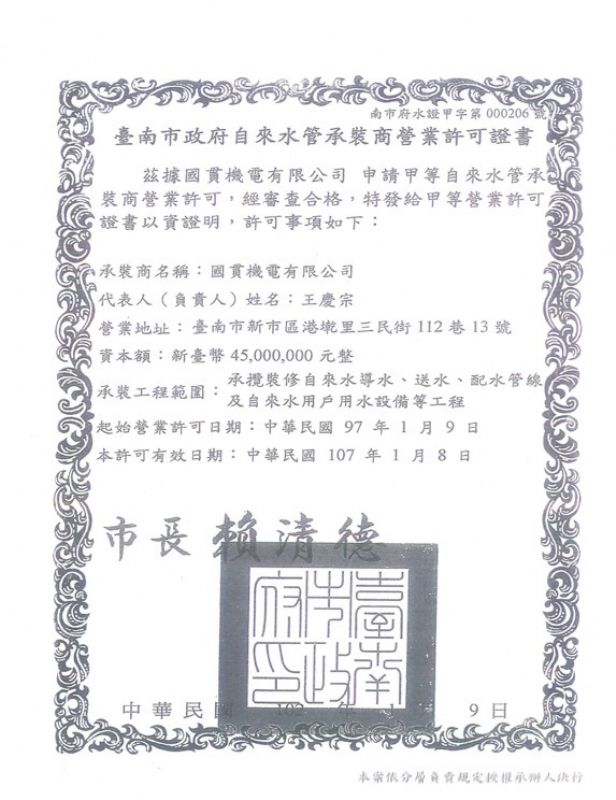 南市府水證甲字第 000206 號
臺南市政府自來水管承裝商營業許可證書
茲據國貫機電有限公司 申請甲等自來水管承
裝商營業許可，經審查合格，特發給甲等營業許可
證書以資證明，許可事項如下：
承裝商名稱：國貫機電有限公司
代表人（負責人）姓名：王慶宗
營業地址：臺南市新市區港墘里三民街 112 巷 13 號
資本額：新臺幣 45,000,000 元整
承裝工程範圍：承攬裝修自來水導水、送水、配水管線
及自來水用戶用水設備等工程
起始營業許可日期：中華民國 97 年 1 月 9 日
本許可有效日期：中華民國 107 年 1 月 8 日
市長 賴清德
臺南市政府印
中華民國 102 年 9 日
本案依分層負責規定授權承辦人決行